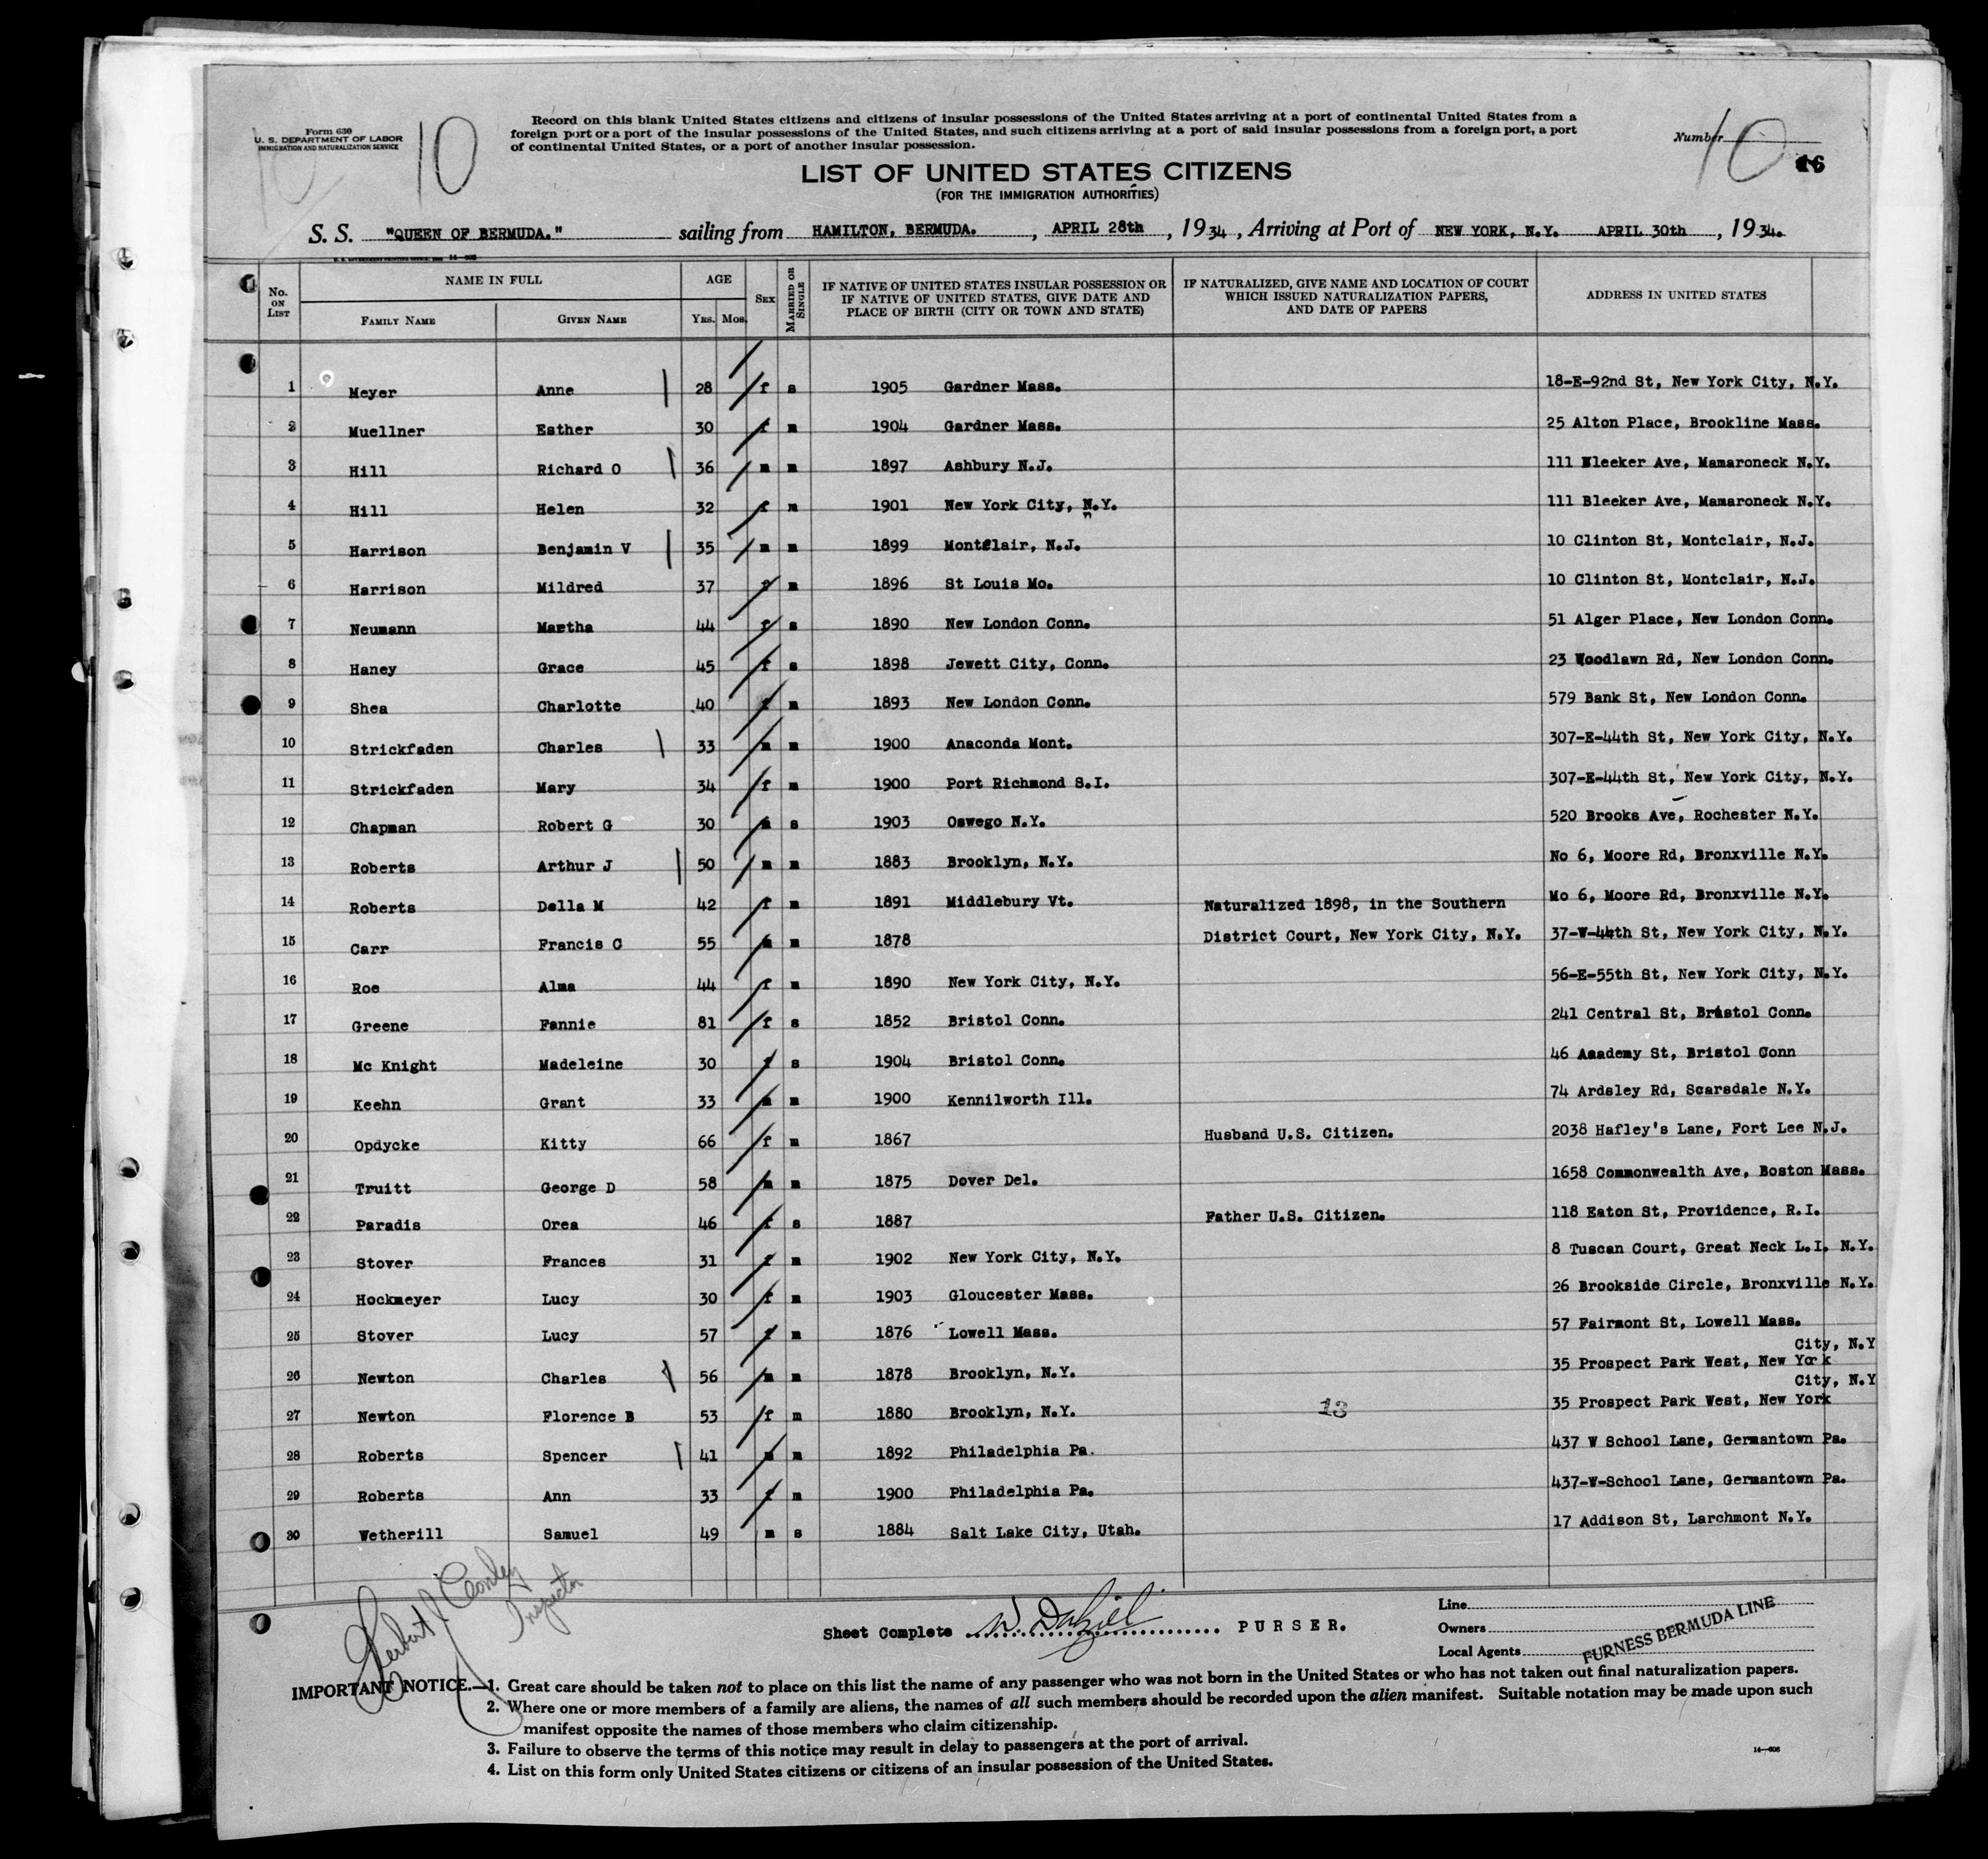 Form 630
U. S. DEPARTMENT OF LABOR
IMMIGRATION AND NATURALIZATION SERVICE
10
Record on this blank United States citizens and citizens of insular possessions of the United States arriving at a port of continental United States from a
foreign port or a port of the insular possessions of the United States, and such citizens arriving at a port of said insular possessions from a foreign port, a port
of continental United States, or a port of another insular possession.
Number 10
16
LIST OF UNITED STATES CITIZENS
(FOR THE IMMIGRATION AUTHORITIES)
S. S. "QUEEN OF BERMUDA." sailing from HAMILTON, BERMUDA. , APRIL 28th , 1934 , Arriving at Port of NEW YORK, N.Y. APRIL 30th , 1934.
No. ON LIST NAME IN FULL FAMILY NAME GIVEN NAME AGE YRS. MOS. SEX MARRIED OR SINGLE IF NATIVE OF UNITED STATES INSULAR POSSESSION OR IF NATIVE OF UNITED STATES, GIVE DATE AND PLACE OF BIRTH (CITY OR TOWN AND STATE) IF NATURALIZED, GIVE NAME AND LOCATION OF COURT WHICH ISSUED NATURALIZATION PAPERS, AND DATE OF PAPERS ADDRESS IN UNITED STATES
1 Meyer Anne 28 f s 1905 Gardner Mass. 18-E-92nd St, New York City, N.Y.
2 Muellner Esther 30 f m 1904 Gardner Mass. 25 Alton Place, Brookline Mass.
3 Hill Richard O 36 m m 1897 Ashbury N.J. 111 Bleeker Ave, Mamaroneck N.Y.
4 Hill Helen 32 f m 1901 New York City, N.Y. 111 Bleeker Ave, Mamaroneck N.Y.
5 Harrison Benjamin V 35 m m 1899 Montclair, N.J. 10 Clinton St, Montclair, N.J.
6 Harrison Mildred 37 f m 1896 St Louis Mo. 10 Clinton St, Montclair, N.J.
7 Neumann Martha 44 f s 1890 New London Conn. 51 Alger Place, New London Conn.
8 Haney Grace 45 f s 1898 Jewett City, Conn. 23 Woodlawn Rd, New London Conn.
9 Shea Charlotte 40 f m 1893 New London Conn. 579 Bank St, New London Conn.
10 Strickfaden Charles 33 m m 1900 Anaconda Mont. 307-E-44th St, New York City, N.Y.
11 Strickfaden Mary 34 f m 1900 Port Richmond S.I. 307-E-44th St, New York City, N.Y.
12 Chapman Robert G 30 m s 1903 Oswego N.Y. 520 Brooks Ave, Rochester N.Y.
13 Roberts Arthur J 50 m m 1883 Brooklyn, N.Y. No 6, Moore Rd, Bronxville N.Y.
14 Roberts Della M 42 f m 1891 Middlebury Vt. Naturalized 1898, in the Southern Mo 6, Moore Rd, Bronxville N.Y.
15 Carr Francis C 55 m m 1878 District Court, New York City, N.Y. 37-W-44th St, New York City, N.Y.
16 Roe Alma 44 f m 1890 New York City, N.Y. 56-E-55th St, New York City, N.Y.
17 Greene Fannie 81 f s 1852 Bristol Conn. 241 Central St, Bristol Conn.
18 Mc Knight Madeleine 30 f s 1904 Bristol Conn. 46 Aaademy St, Bristol Conn
19 Keehn Grant 33 m m 1900 Kennilworth Ill. 74 Ardsley Rd, Scarsdale N.Y.
20 Opdycke Kitty 66 f m 1867 Husband U.S. Citizen. 2038 Hafley's Lane, Fort Lee N.J.
21 Truitt George D 58 m m 1875 Dover Del. 1658 Commonwealth Ave, Boston Mass.
22 Paradis Orea 46 f s 1887 Father U.S. Citizen. 118 Eaton St, Providence, R.I.
23 Stover Frances 31 f m 1902 New York City, N.Y. 8 Tuscan Court, Great Neck L.I. N.Y.
24 Hockmeyer Lucy 30 f m 1903 Gloucester Mass. 26 Brookside Circle, Bronxville N.Y.
25 Stover Lucy 57 f m 1876 Lowell Mass. 57 Fairmont St, Lowell Mass.
City, N.Y
26 Newton Charles 56 m m 1878 Brooklyn, N.Y. 35 Prospect Park West, New York
City, N.Y
27 Newton Florence B 53 f m 1880 Brooklyn, N.Y. 13 35 Prospect Park West, New York
28 Roberts Spencer 41 m m 1892 Philadelphia Pa. 437 W School Lane, Germantown Pa.
29 Roberts Ann 33 f m 1900 Philadelphia Pa. 437-W-School Lane, Germantown Pa.
30 Wetherill Samuel 49 m s 1884 Salt Lake City, Utah. 17 Addison St, Larchmont N.Y.
Herbert J. Conley
Inspector
Sheet Complete W. Dalziel PURSER.
Line
Owners
Local Agents FURNESS BERMUDA LINE
IMPORTANT NOTICE.—1. Great care should be taken not to place on this list the name of any passenger who was not born in the United States or who has not taken out final naturalization papers.
2. Where one or more members of a family are aliens, the names of all such members should be recorded upon the alien manifest. Suitable notation may be made upon such
manifest opposite the names of those members who claim citizenship.
3. Failure to observe the terms of this notice may result in delay to passengers at the port of arrival.
4. List on this form only United States citizens or citizens of an insular possession of the United States.